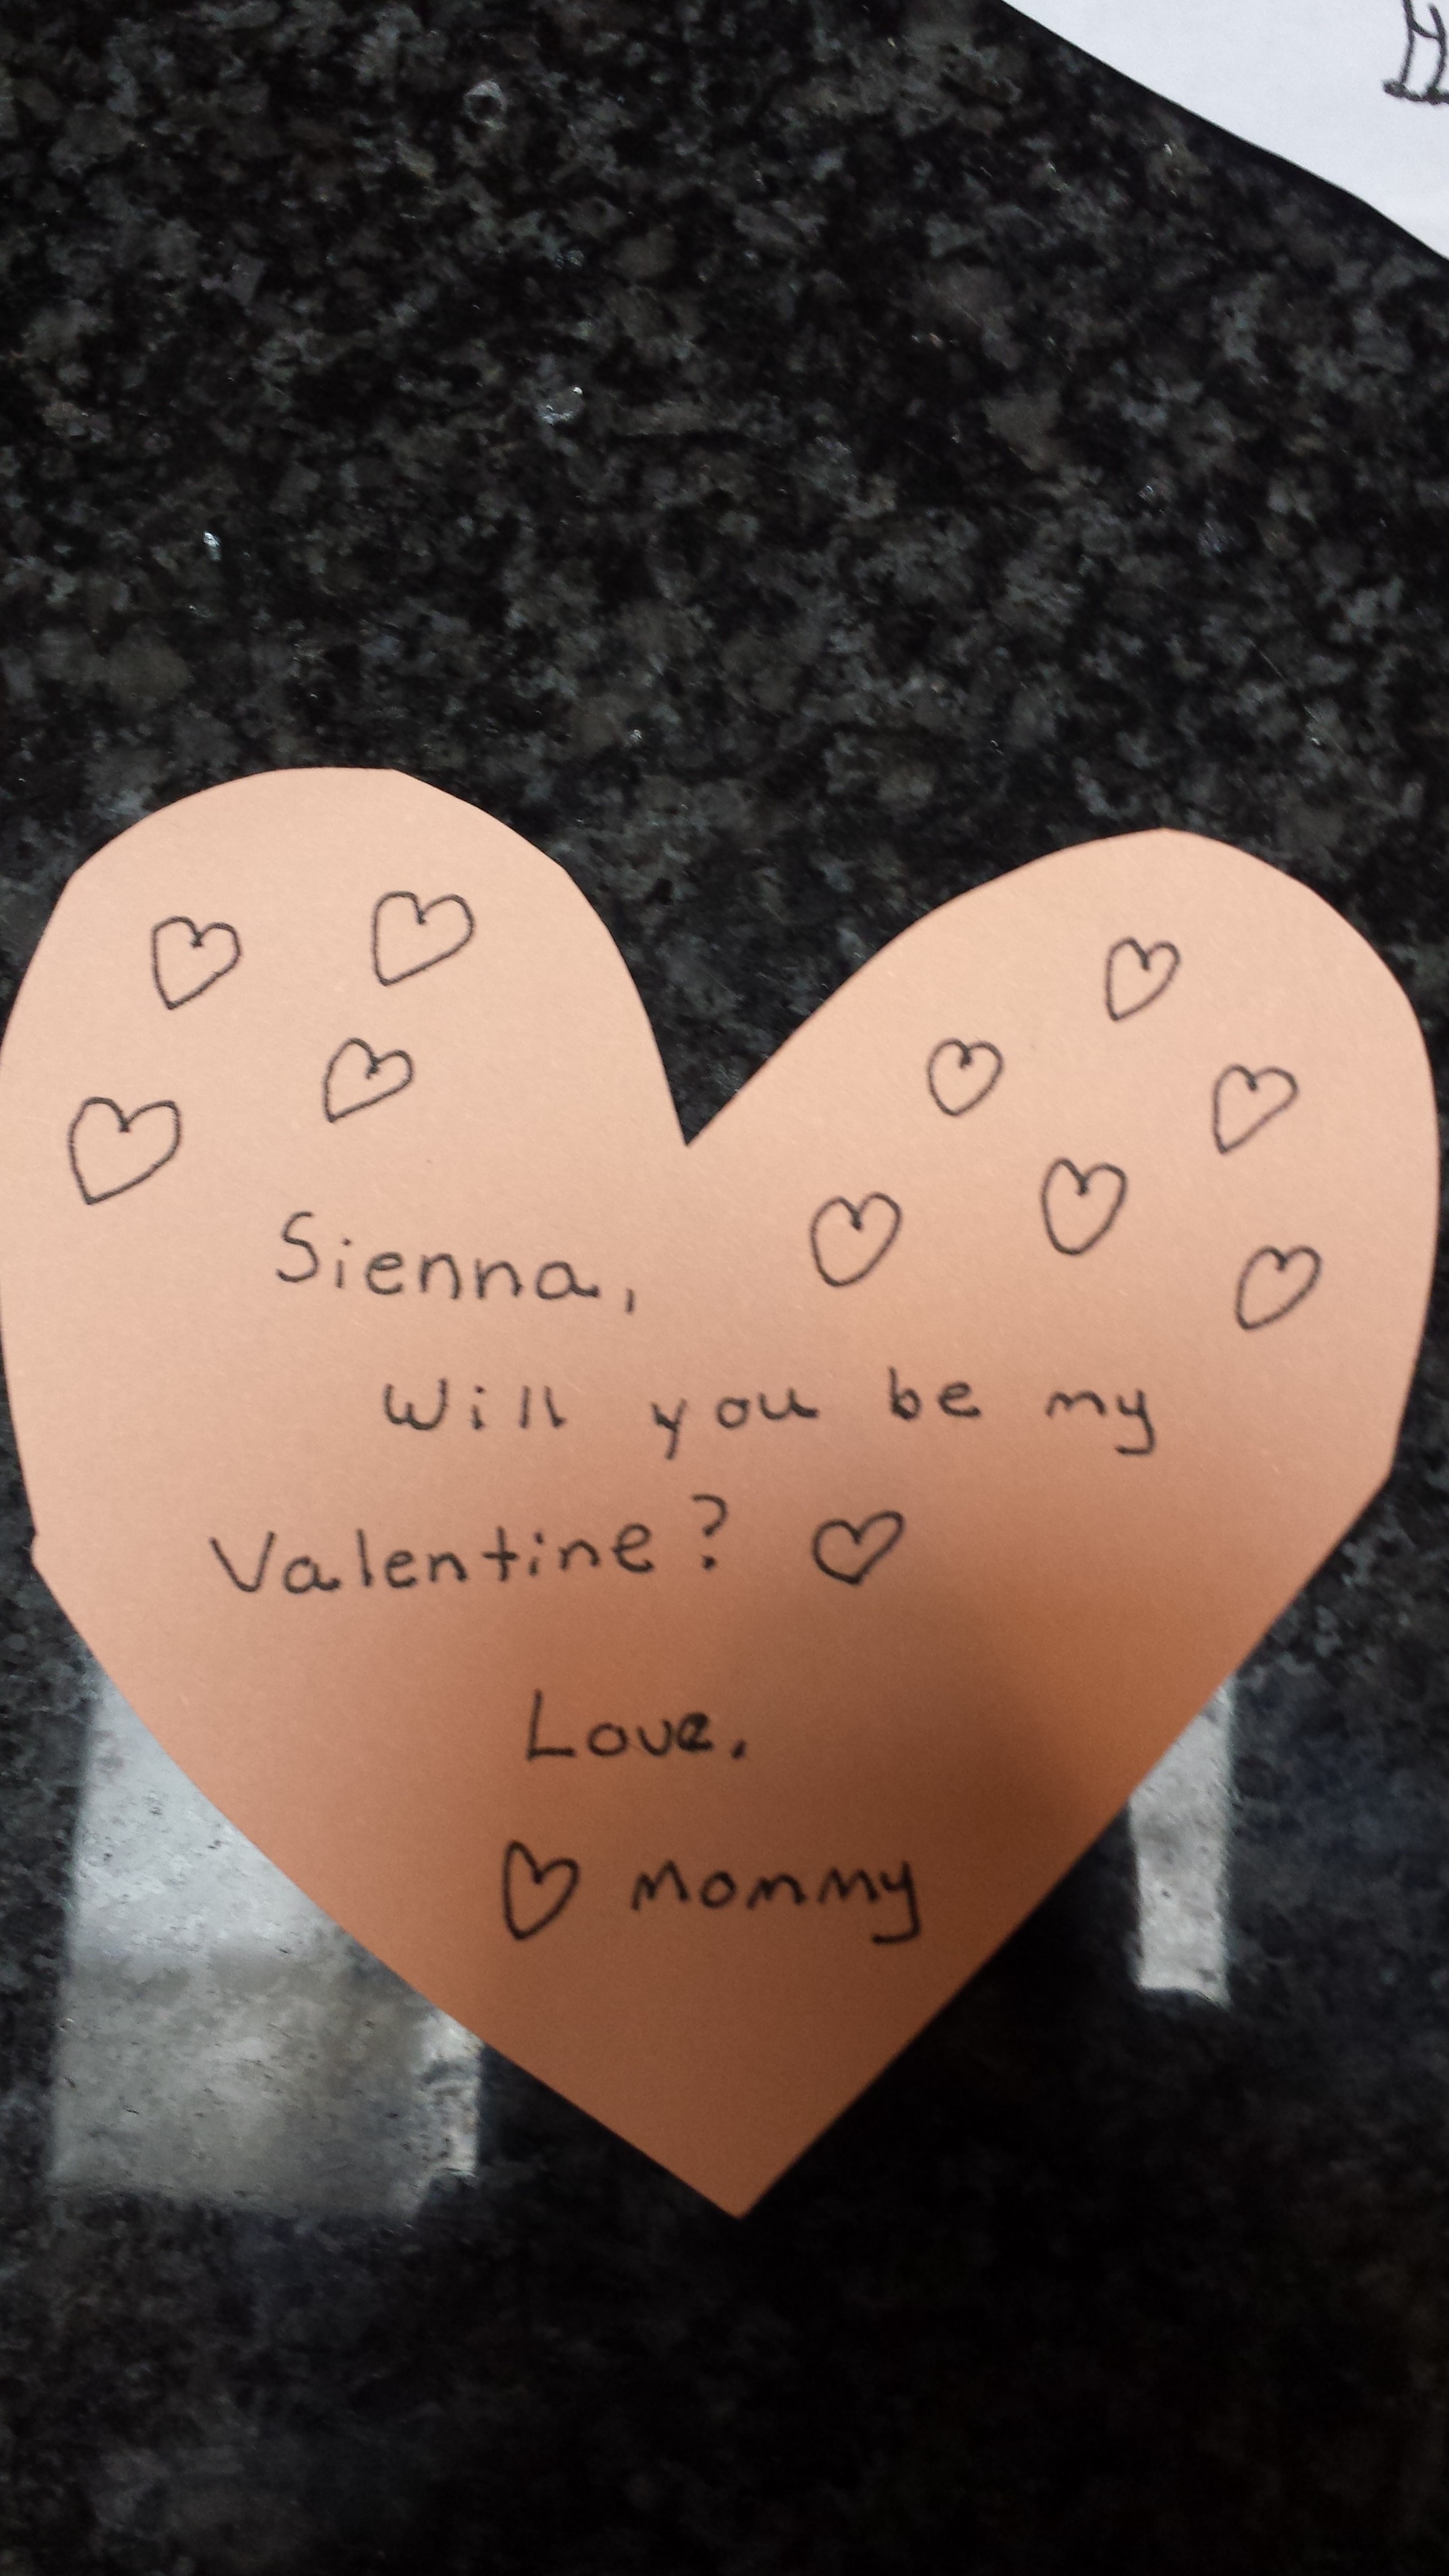 Sienna,
Will you be my
Valentine? ♡
Love,
♡ Mommy